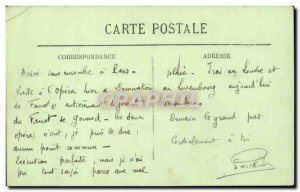 CARTE POSTALE
CORRESPONDANCE
ADRESSE
Arrivé sans encombre à Paris
Visite à l'Opéra hier "Damnation
de Faust" entièrement
du Faust de Gounod - les deux
opéras n'ont, je puis le dire,
aucun point commun -
Exécution parfaite, mais je n'ai
pu tout saisir parce que mal
placé. Irai au Louvre et
au Luxembourg aujourd'hui
Demain le grand pas
Cordialement à toi